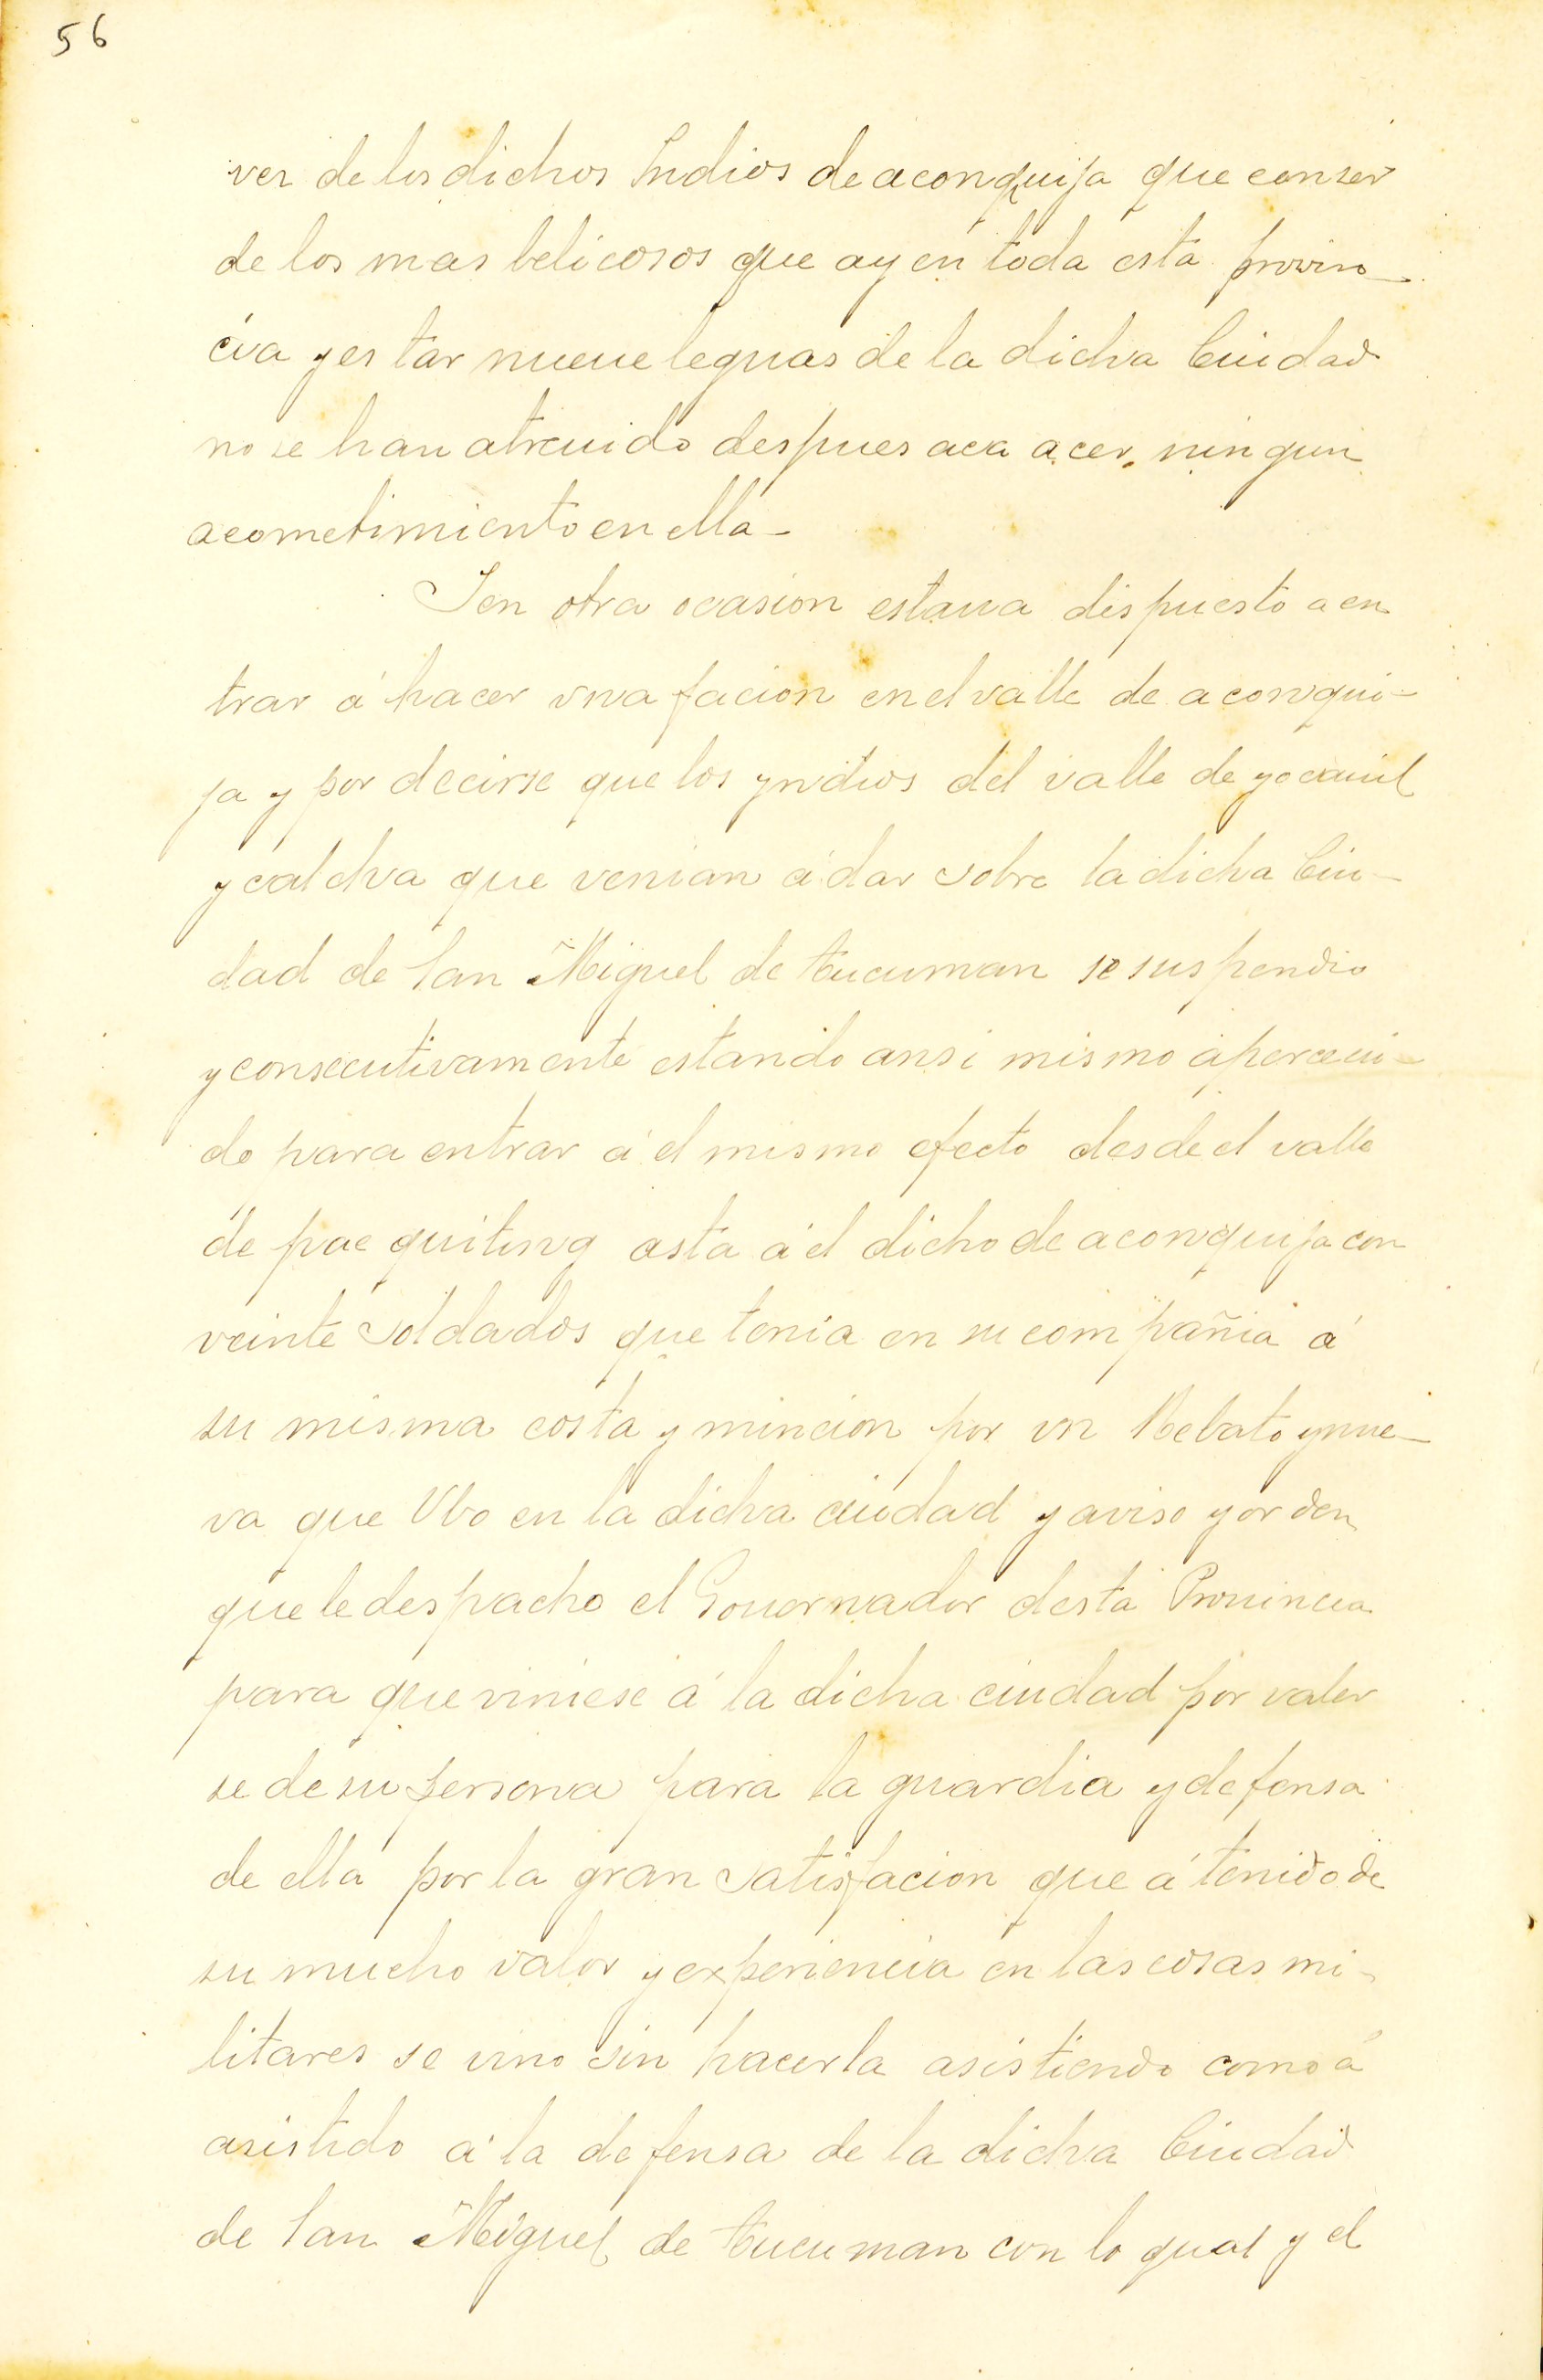 56
ver de los dichos Indios de aconquija que conser
de los mas belicosos que ay en toda esta provin-
cia y es tar nueue leguas de la dicha Ciudad
no se han atreuido despues aca acer ningun
acometimiento en ella -
I en otra ocasion estaua dispuesto a en
trar á hacer vna facion en el valle de aconqui-
ja y por decirse que los yndios del valle de yocauil
y calcha que venian á dar sobre la dicha Ciu-
dad de San Miguel de tucuman se suspendio
y consecutivamente estando ansi mismo aperceui-
do para entrar á el mismo efecto desde el valle
de pac quiling asta á el dicho de aconquija con
veinte soldados que tenia en su compañia á
su misma costa y mincion por vn Rebato y nue-
va que Vbo en la dicha ciudad y aviso y orden
que le despacho el Gouernador desta Prouincia
para que viniese á la dicha ciudad por valer
se de su persona para la guardia y defensa
de ella por la gran satisfacion que á tenido de
su mucho valor y experiencia en las cosas mi-
litares se vino sin hacerla asistiendo como á
asistido á la defensa de la dicha Ciudad
de San Miguel de tucuman con lo qual y el